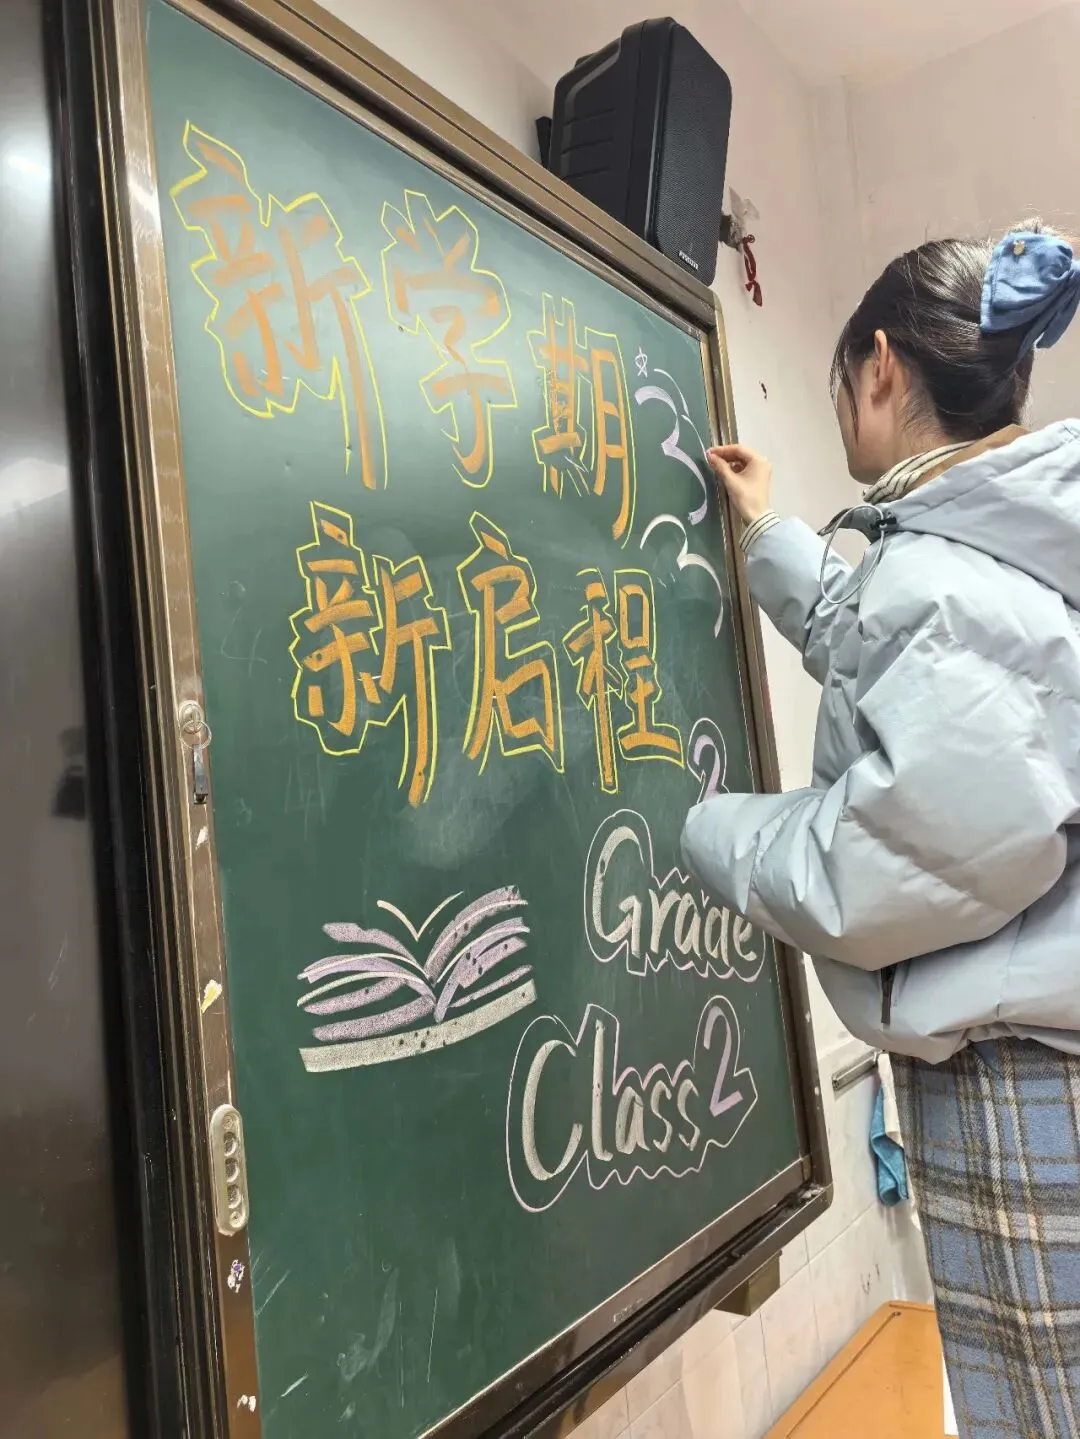 新学期
新启程
2
Grade
Class 2